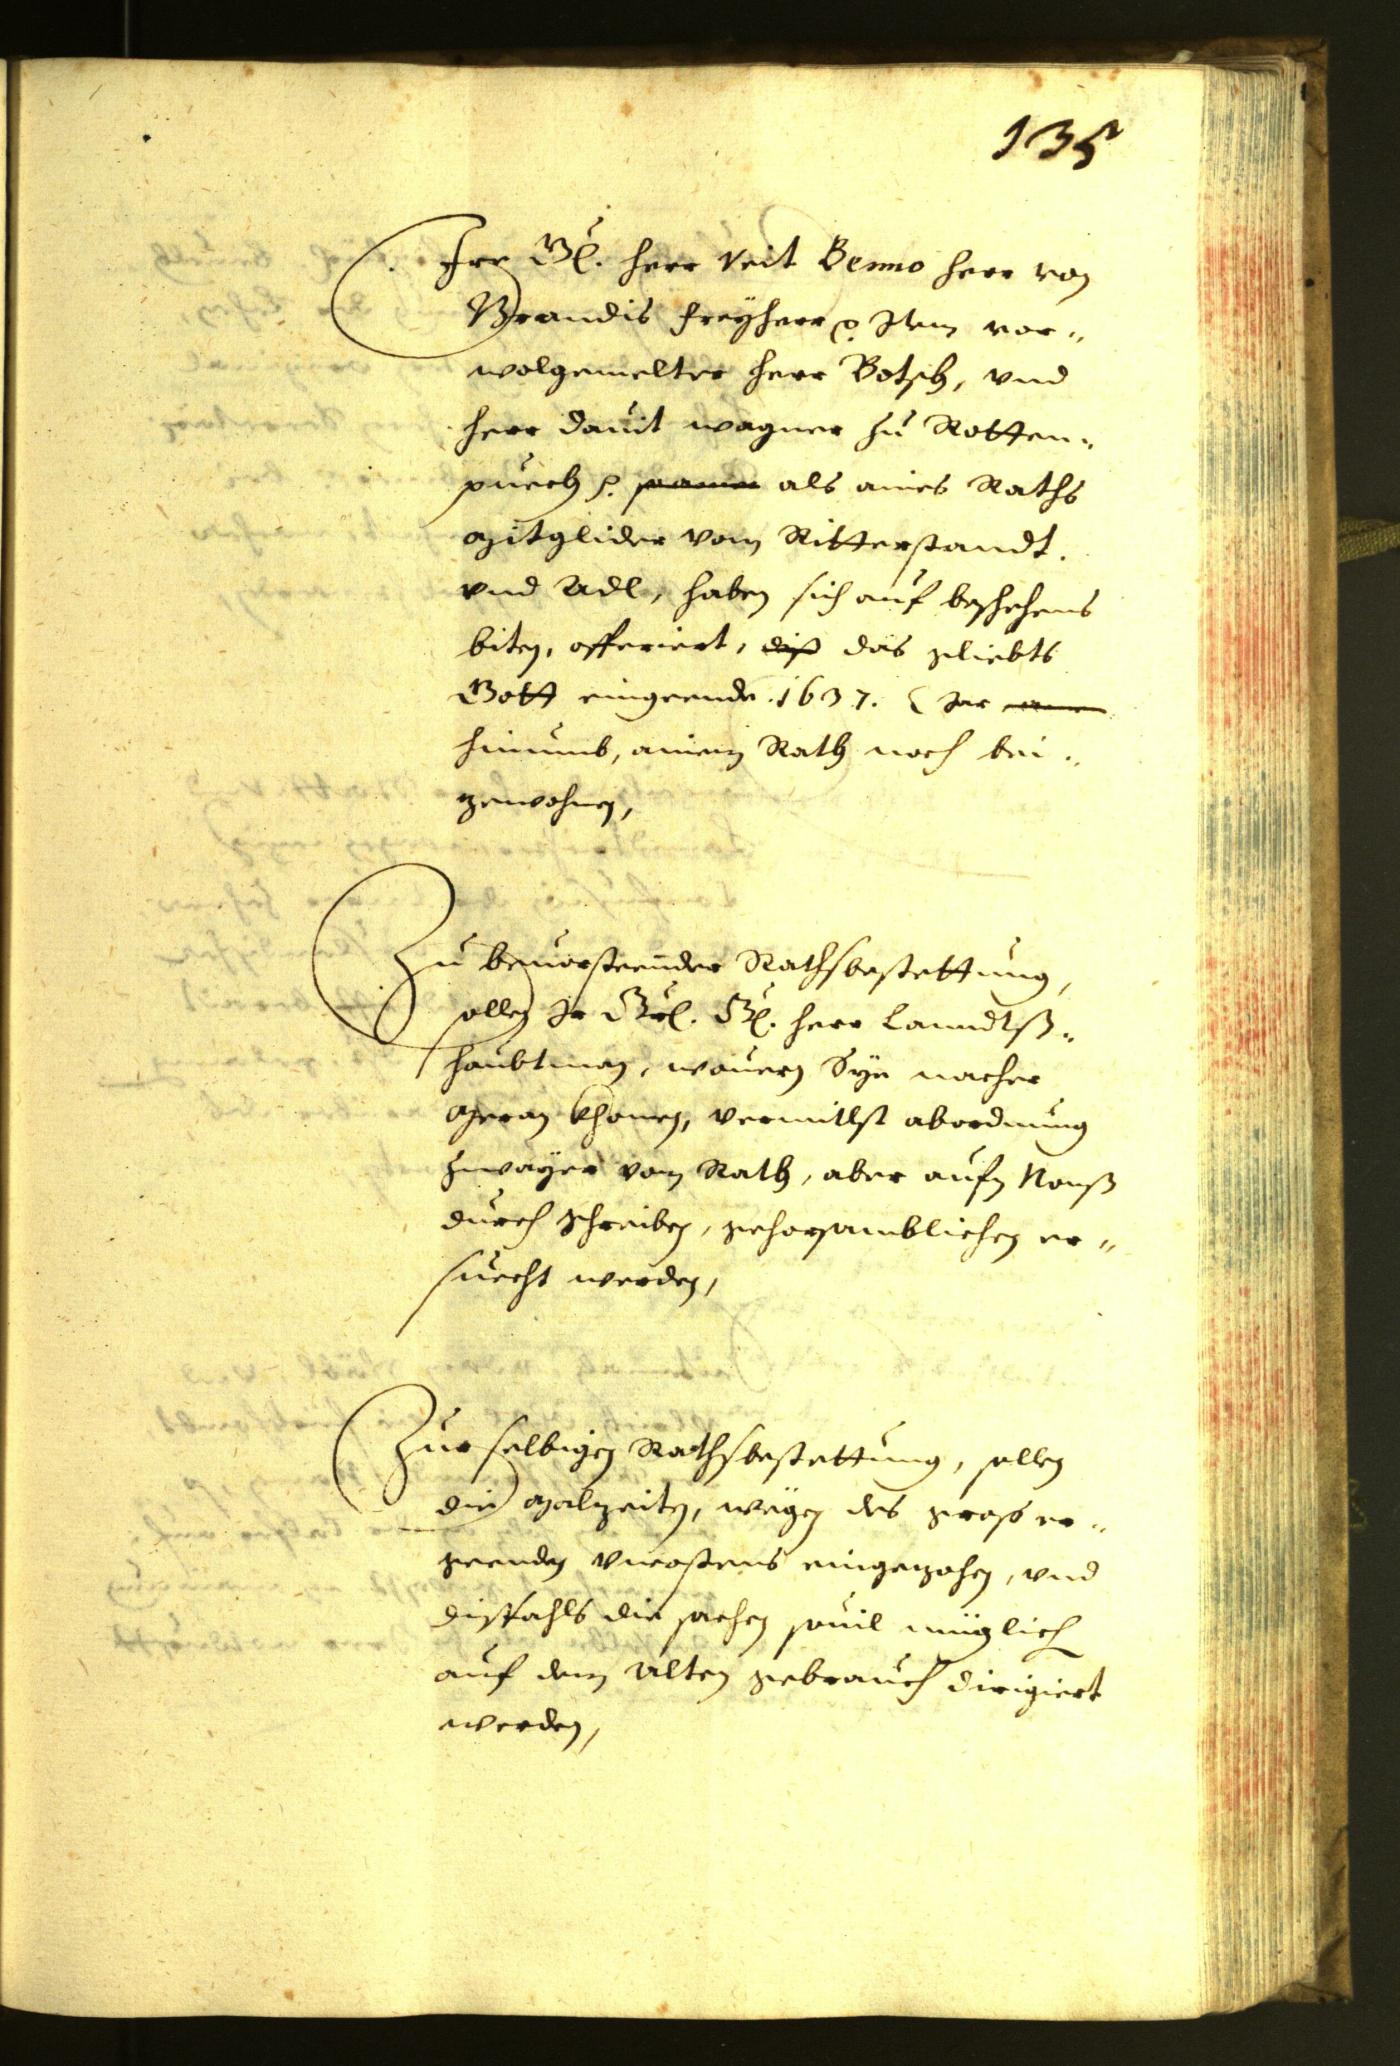 135
Irr Gl. herr Veit Benno herr von
Brandis freyherr ꝛc. Item vor-
wolgemelter herr Botsch, vnd
herr Dauit wagner zu Rotten-
puech ꝛc. als aines Raths
mitglider vom Ritterstandt.
vnd Adl, haben sich auf beschehens
biten, offeriert, diß das geliebts
Gott eingeende .1637. Jar
hinumb, ainem Rath noch bei-
zewohnen,
Zu beuorsteender Rathsbestettung,
sollen Ir Gl. herr Lanndtß-
haubtman, wouern Sye nacher
Meran khomen, vermitlst abordnung
zwayer vom Rath, aber aufm Nonß
durch schreiben, gehorsamblichen er-
suecht werden,
Zur selbigen Rathsbestettung, sollen
die Malzeiten, wegen des gross er-
geenden Vncostens eingezohen, vnd
dißfahls die sachen souil müglich
auf dem alten gebrauch dirigiert
werden,